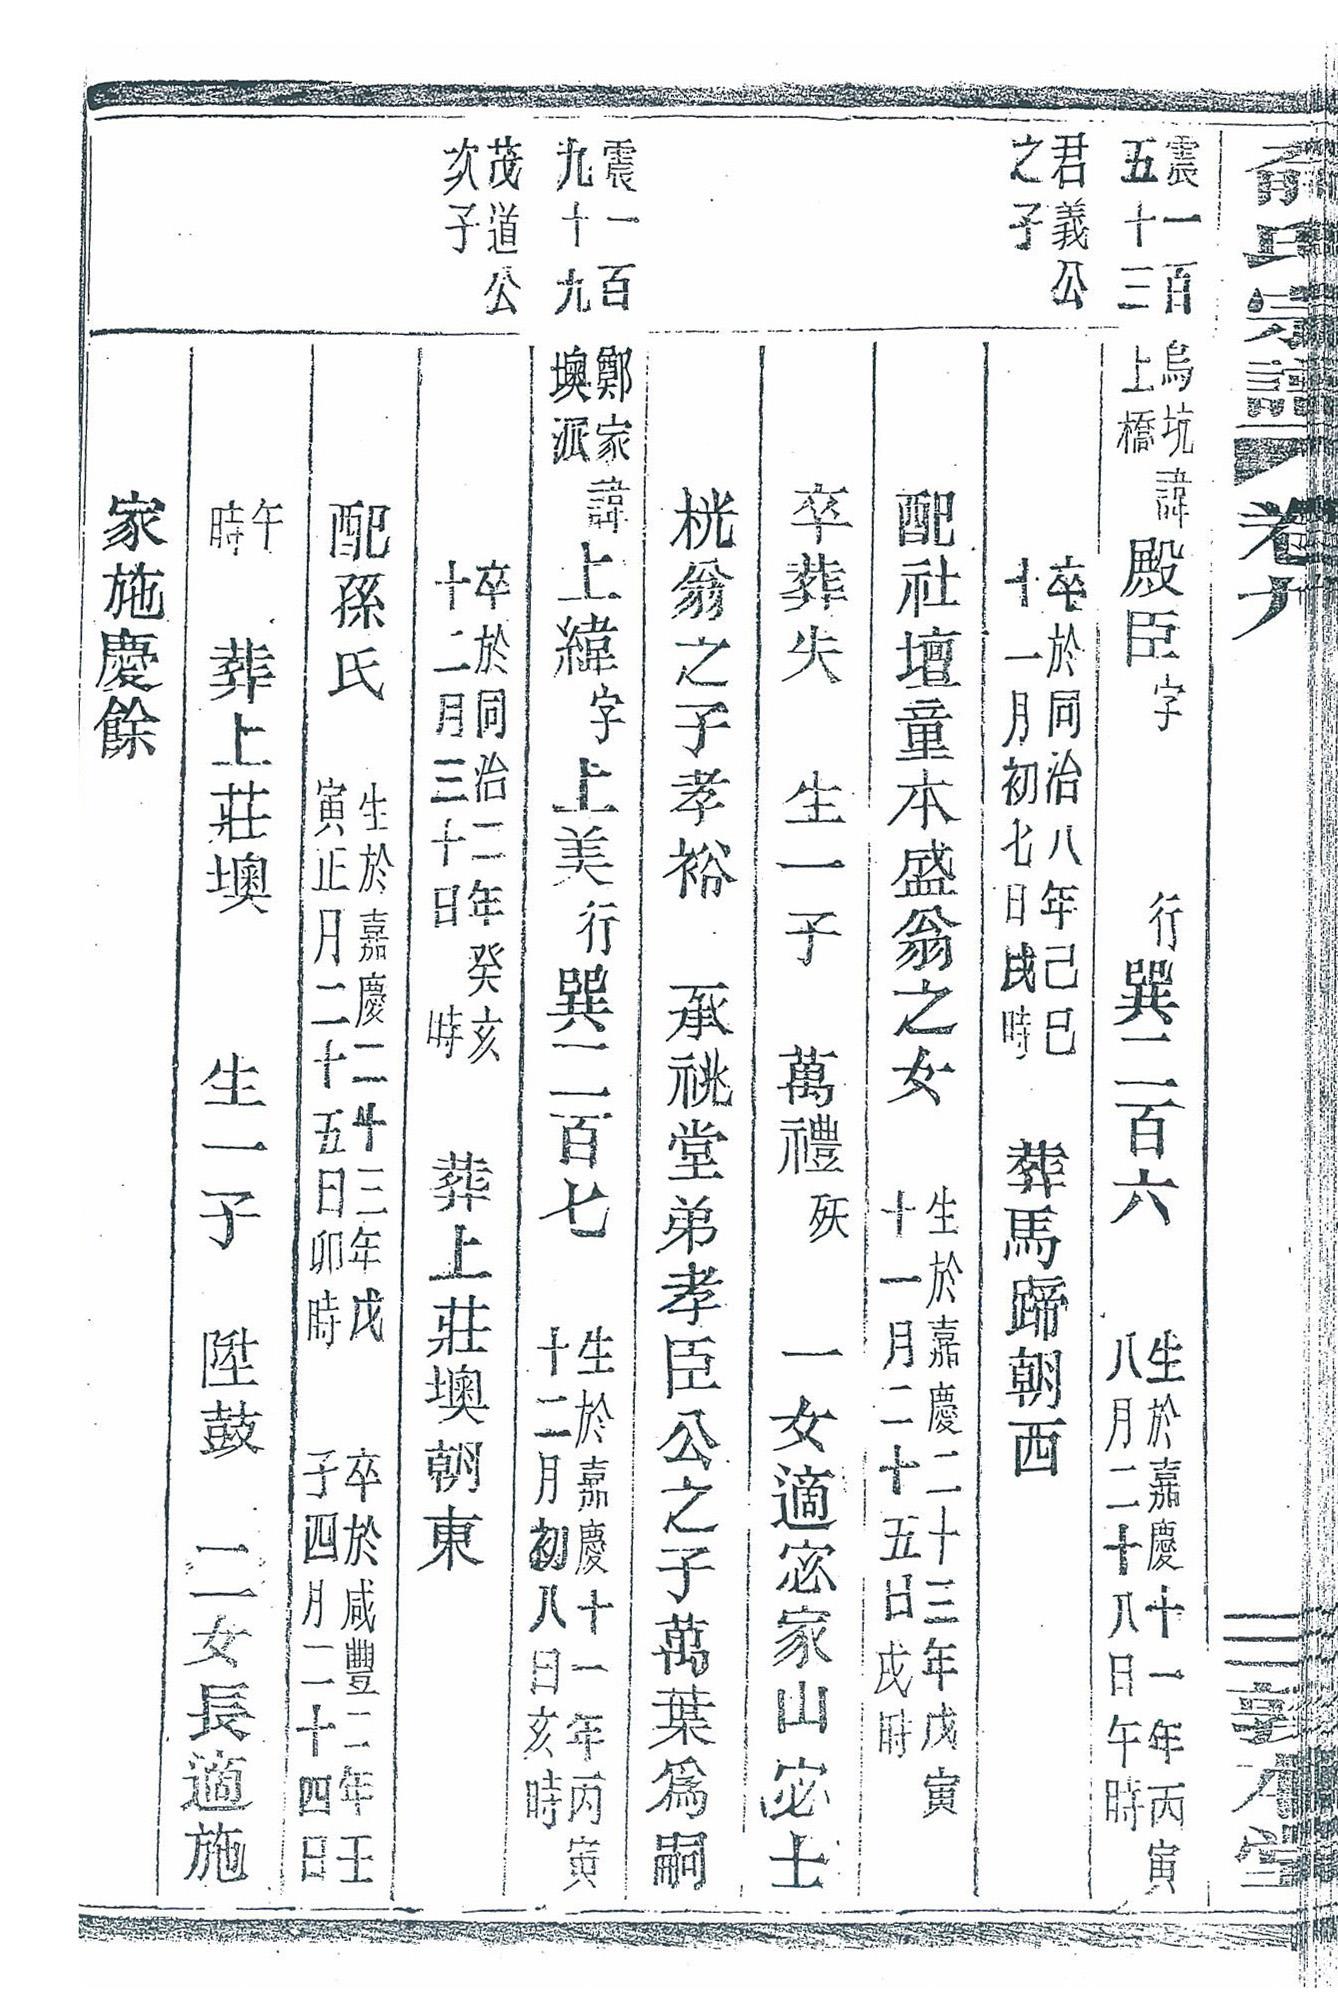 俞氏宗譜 卷九 敦本堂
震一百五十三
君義公之子
烏坑上橋 諱殿臣字 行巽二百六 生於嘉慶十一年丙寅八月二十八日午時
卒於同治八年己巳十一月初七日戌時 葬馬蹄朝西
配社壇童本盛翁之女 生於嘉慶二十三年戊寅十一月二十五日戌時
卒葬失 生一子 萬禮 殀 一女適宓家山宓士
桄翁之子孝裕 承祧堂弟孝臣公之子萬葉爲嗣
震一百九十九
茂道公次子
鄭家墺派 諱上緯字上美行巽二百七 生於嘉慶十一年丙寅十二月初八日亥時
卒於同治二年癸亥十二月三十日 時 葬上莊墺朝東
配孫氏 生於嘉慶二十三年戊寅正月二十五日卯時 卒於咸豐二年壬子四月二十四日
午時 葬上莊墺 生一子 陞鼓 二女長適施
家施慶餘